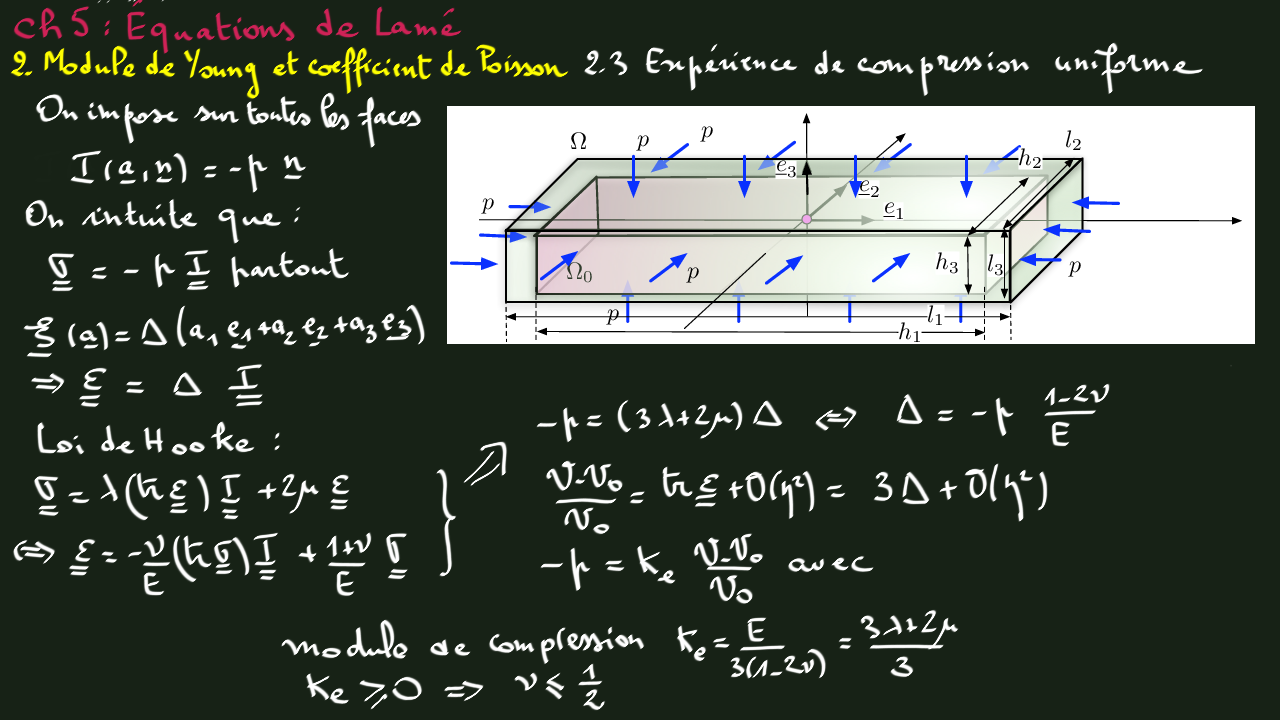 Ch 5 : Équations de Lamé
2. Module de Young et coefficient de Poisson 2.3 Expérience de compression uniforme
On impose sur toutes les faces
T(a,n) = -p n
On intuite que :
σ = - p I partout
ξ(a) = Δ(a₁ e₁ + a₂ e₂ + a₃ e₃)
⇒ ε = Δ I
Loi de Hooke :
σ = λ(tr ε) I + 2μ ε
⇔ ε = -ν/E (tr σ) I + (1+ν)/E σ
Ω p p l₂
h₂
e₃
e₂
p e₁
Ω₀ p h₃ l₃ p
p l₁
h₁
-p = (3λ+2μ) Δ ⇔ Δ = -p (1-2ν)/E
(V-V₀)/V₀ = tr ε + O(η²) = 3Δ + O(η²)
-p = Kₑ (V-V₀)/V₀ avec
module de compression Kₑ = E/(3(1-2ν)) = (3λ+2μ)/3
Kₑ ⩾ 0 ⇒ ν ⩽ 1/2